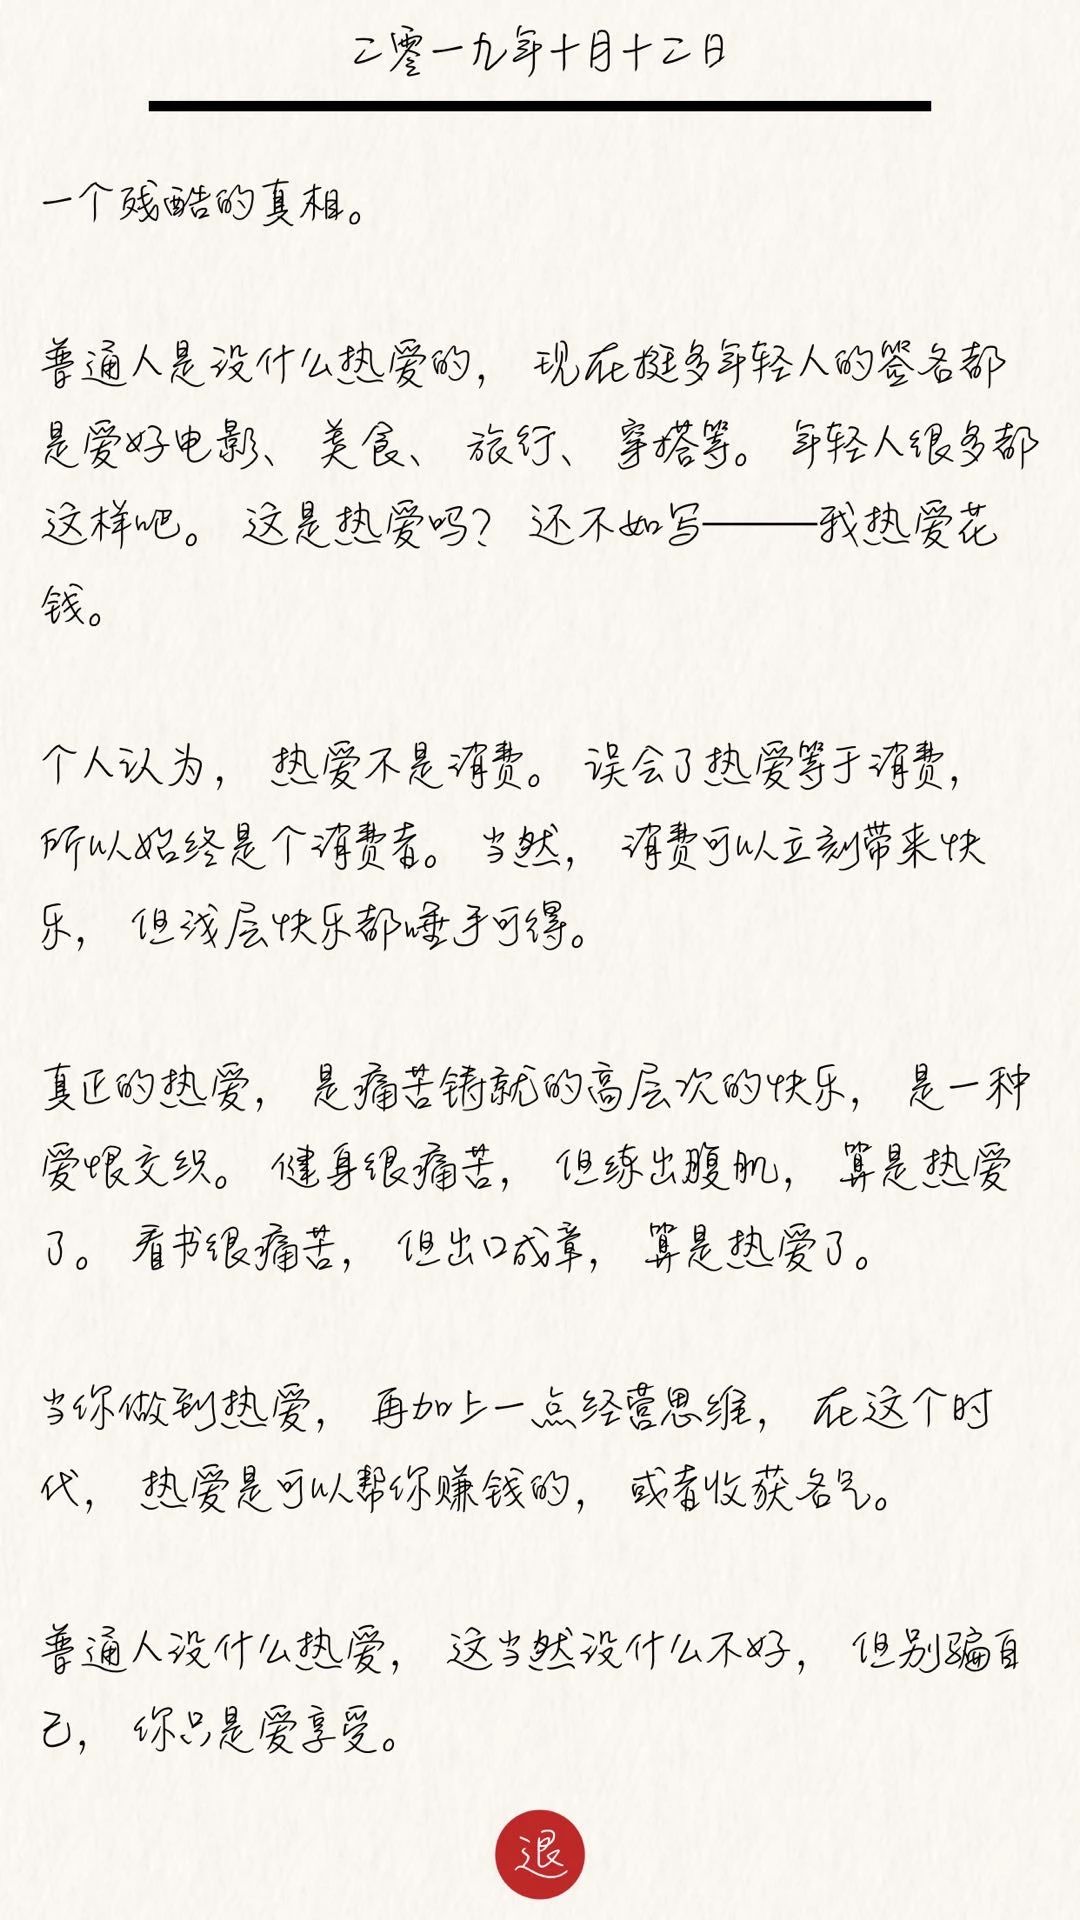 二零一九年十月十二日
一个残酷的真相。
普通人是没什么热爱的，现在挺多年轻人的签名都
是爱好电影、美食、旅行、穿搭等。年轻人很多都
这样吧。这是热爱吗？还不如写———我热爱花
钱。
个人认为，热爱不是消费。误会了热爱等于消费，
所以始终是个消费者。当然，消费可以立刻带来快
乐，但浅层快乐都唾手可得。
真正的热爱，是痛苦铸就的高层次的快乐，是一种
爱恨交织。健身很痛苦，但练出腹肌，算是热爱
了。看书很痛苦，但出口成章，算是热爱了。
当你做到热爱，再加上一点经营思维，在这个时
代，热爱是可以帮你赚钱的，或者收获名气。
普通人没什么热爱，这当然没什么不好，但别骗自
己，你只是爱享受。
退